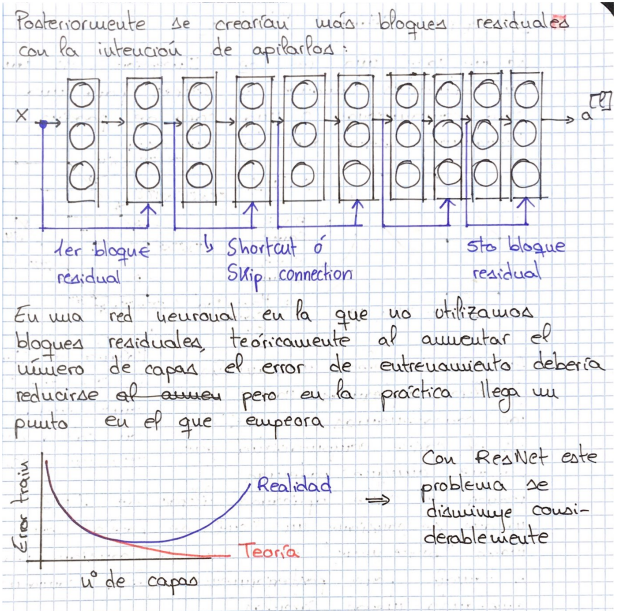 Posteriormente se crearían más bloques residuales
con la intención de apilarlos:
X
a[l]
1er bloque
residual.
↳ Shortcut ó
Skip connection
5to bloque
residual
En una red neuronal en la que no utilizamos
bloques residuales, teóricamente al aumentar el
número de capas el error de entrenamiento debería
reducirse al aumen pero en la práctica llega un
punto en el que empeora
Error train
Realidad
Teoría
nº de capas
⇒
Con ResNet este
problema se
disminuye consi-
derablemente